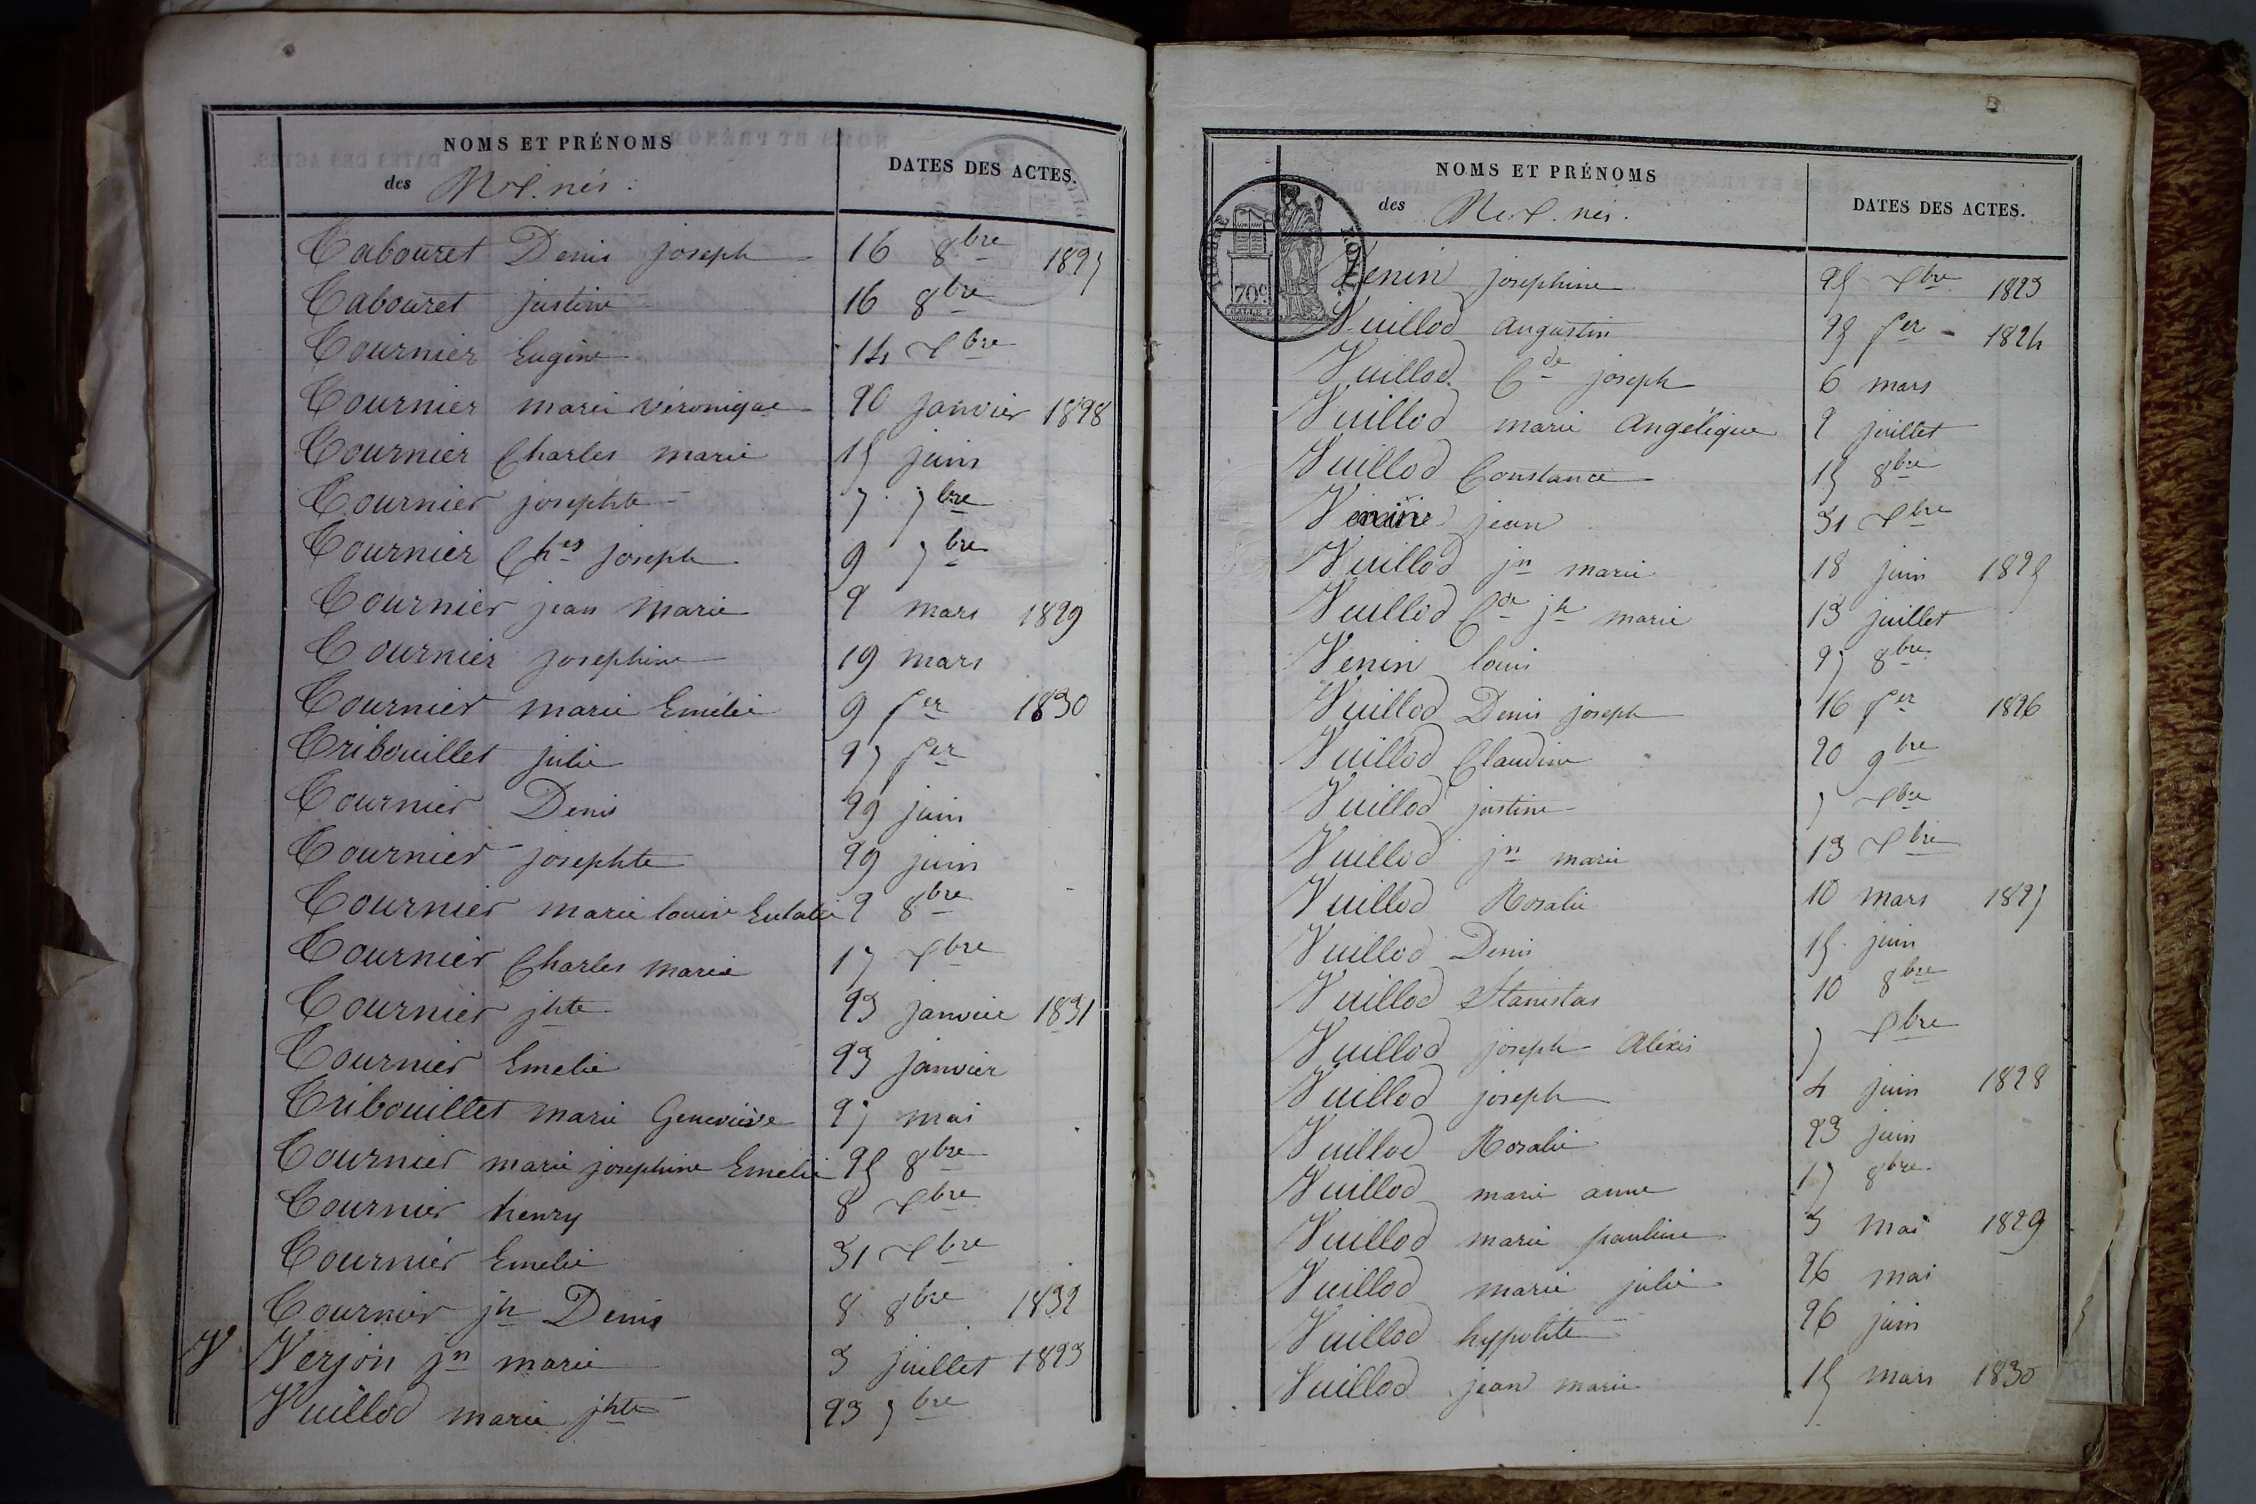 NOMS ET PRÉNOMS
des
DATES DES ACTES.
Tabouret Denis joseph 16 8bre 1827
Tabouret justine 16 8bre
Tournier Eugène 14 Xbre
Tournier marie véronique 20 janvier 1828
Tournier Charles marie 15 juin
Tournier josephte 7 7bre
Tournier Ches joseph 9 7bre
Tournier jean marie 2 mars 1829
Tournier josephine 19 mars
Tournier marie Emélie 9 fer 1830
Tribouillet julie 27 fer
Tournier Denis 29 juin
Tournier josephte 29 juin
Tournier marie louise Eulalie 2 8bre
Tournier Charles marie 17 Xbre
Tournier jhte 23 janvier 1831
Tournier Emelie 23 janvier
Tribouillet marie Geneviève 27 mai
Tournier marie josephine Emelie 25 8bre
Tournier henry 8 Xbre
Tournier Emelie 31 Xbre
Tournier jh Denis 8 8bre 1832
V Verjon jn marie 3 juillet 1823
Vuillod marie jhte 23 7bre
NOMS ET PRÉNOMS
des
DATES DES ACTES.
TIMBRE ROYAL
70c
Venin josephine 25 Xbre 1823
Vuillod augustin 25 fer 1824
Vuillod Cde joseph 6 mars
Vuillod marie Angélique 2 juillet
Vuillod Constance 15 8bre
Venin jean 31 Xbre
Vuillod jn marie 18 juin 1825
Vuillod Cde jh marie 13 juillet
Venin louis 27 8bre
Vuillod Denis joseph 16 fer 1826
Vuillod Claudine 20 9bre
Vuillod justine 7 Xbre
Vuillod jn marie 13 Xbre
Vuillod Rosalie 10 mars 1827
Vuillod Denis 15 juin
Vuillod Stanislas 10 8bre
Vuillod joseph Aléxis 7 Xbre
Vuillod joseph 4 juin 1828
Vuillod Rosalie 23 juin
Vuillod marie anne 17 8bre
Vuillod marie pauline 3 mai 1829
Vuillod marie julie 26 mai
Vuillod hyppolite 26 juin
Vuillod jean marie 15 mars 1830